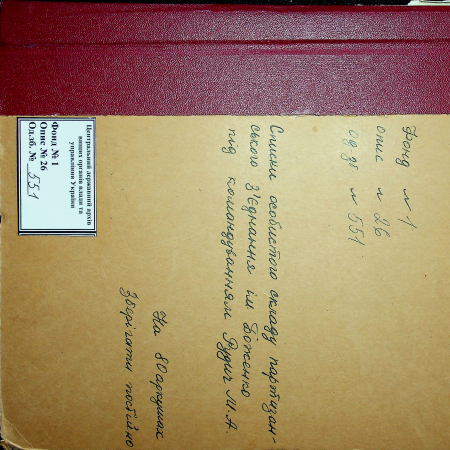 Фонд № 1
опис № 26
од зб № 551
Списки особистого складу партизан-
ського з'єднання ім Боженко
під командуванням Рудич М.А.
На 80 аркушах
Зберігати постійно
Центральний державний архів
вищих органів влади та
управління України
Фонд № 1
Опис № 26
Од.зб. № 551